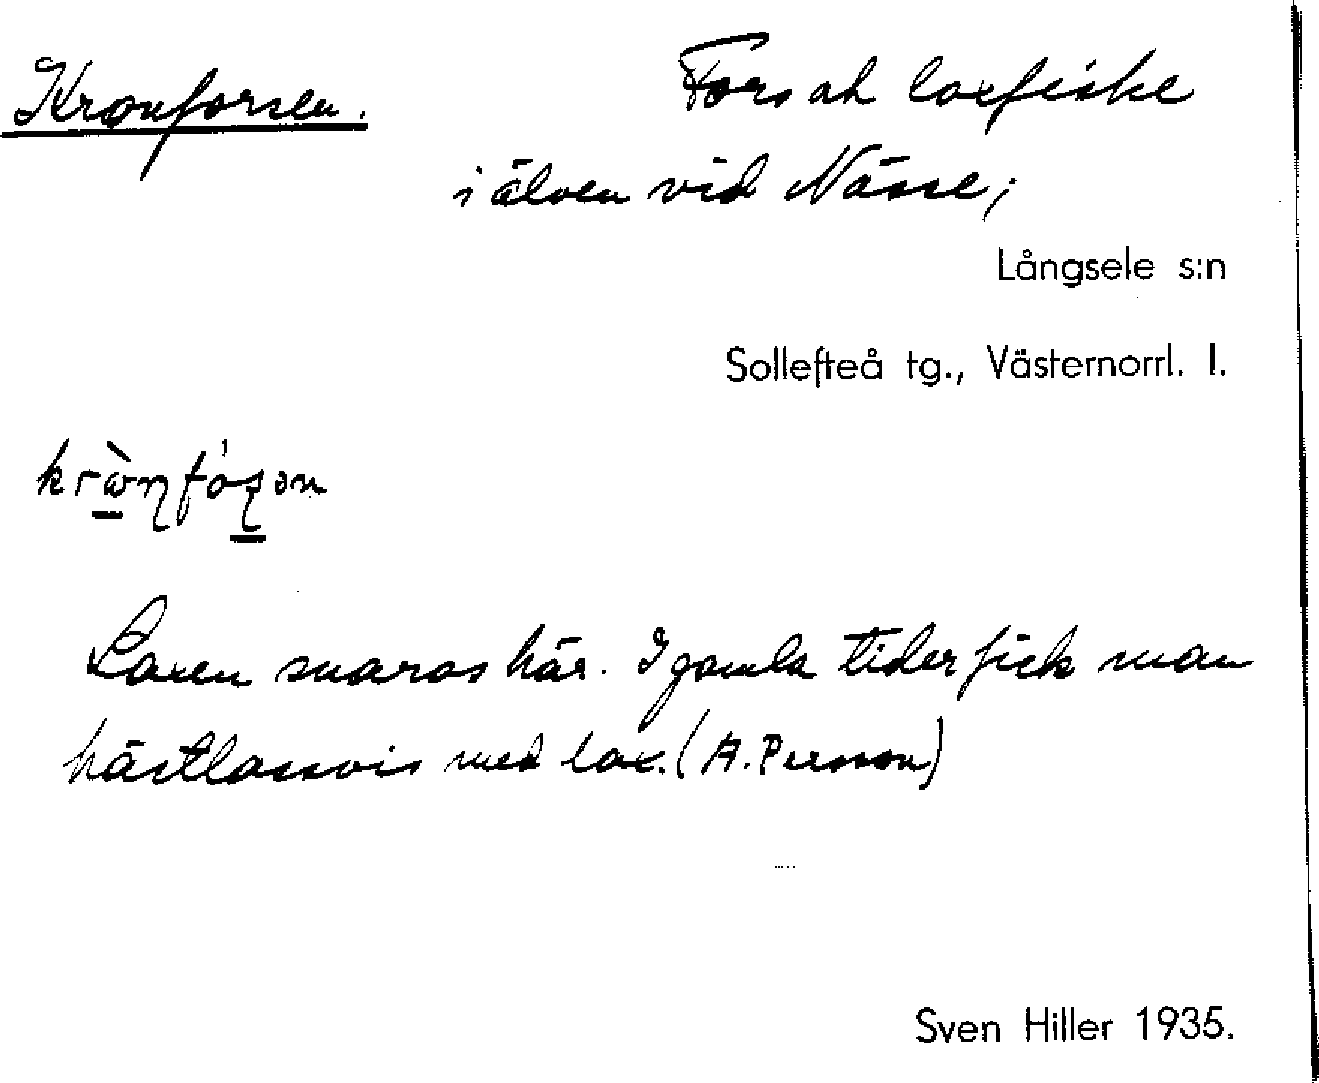 Kronforsen. Fors och laxfiske
i älven vid Nässe;
Långsele s:n
Sollefteå tg., Västernorrl. l.
Laxen snaras här. I gamla tider fick man
hästlassvis med lax. (A. Persson)
Sven Hiller 1935.